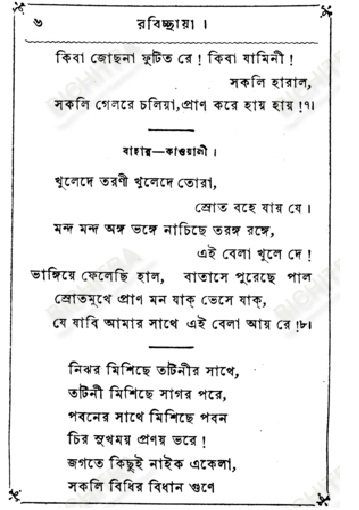 ৬ রবিচ্ছায়া ।
কিবা জোছনা ফুটিত রে ! কিবা যামিনী !
সকলি হারাল,
সকলি গেলরে চলিয়া,প্রাণ করে হায় হায় !৭।
বাহার—কাওয়ালী ।
খুলেদে তরণী খুলেদে তোরা,
স্রোত বহে যায় যে ।
মন্দ মন্দ অঙ্গ ভঙ্গে নাচিছে তরঙ্গ রঙ্গে,
এই বেলা খুলে দে !
ভাঙ্গিয়ে ফেলেছি হাল, বাতাসে পুরেছে পাল
স্রোতমুখে প্রাণ মন যাক্ ভেসে যাক্,
যে যাবি আমার সাথে এই বেলা আয় রে !৮॥
নিঝর মিশিছে তটিনীর সাথে,
তটিনী মিশিছে সাগর পরে,
পবনের সাথে মিশিছে পবন
চির সুখময় প্রণয় ভরে !
জগতে কিছুই নাইক একেলা,
সকলি বিধির বিধান গুণে
BICHITRA